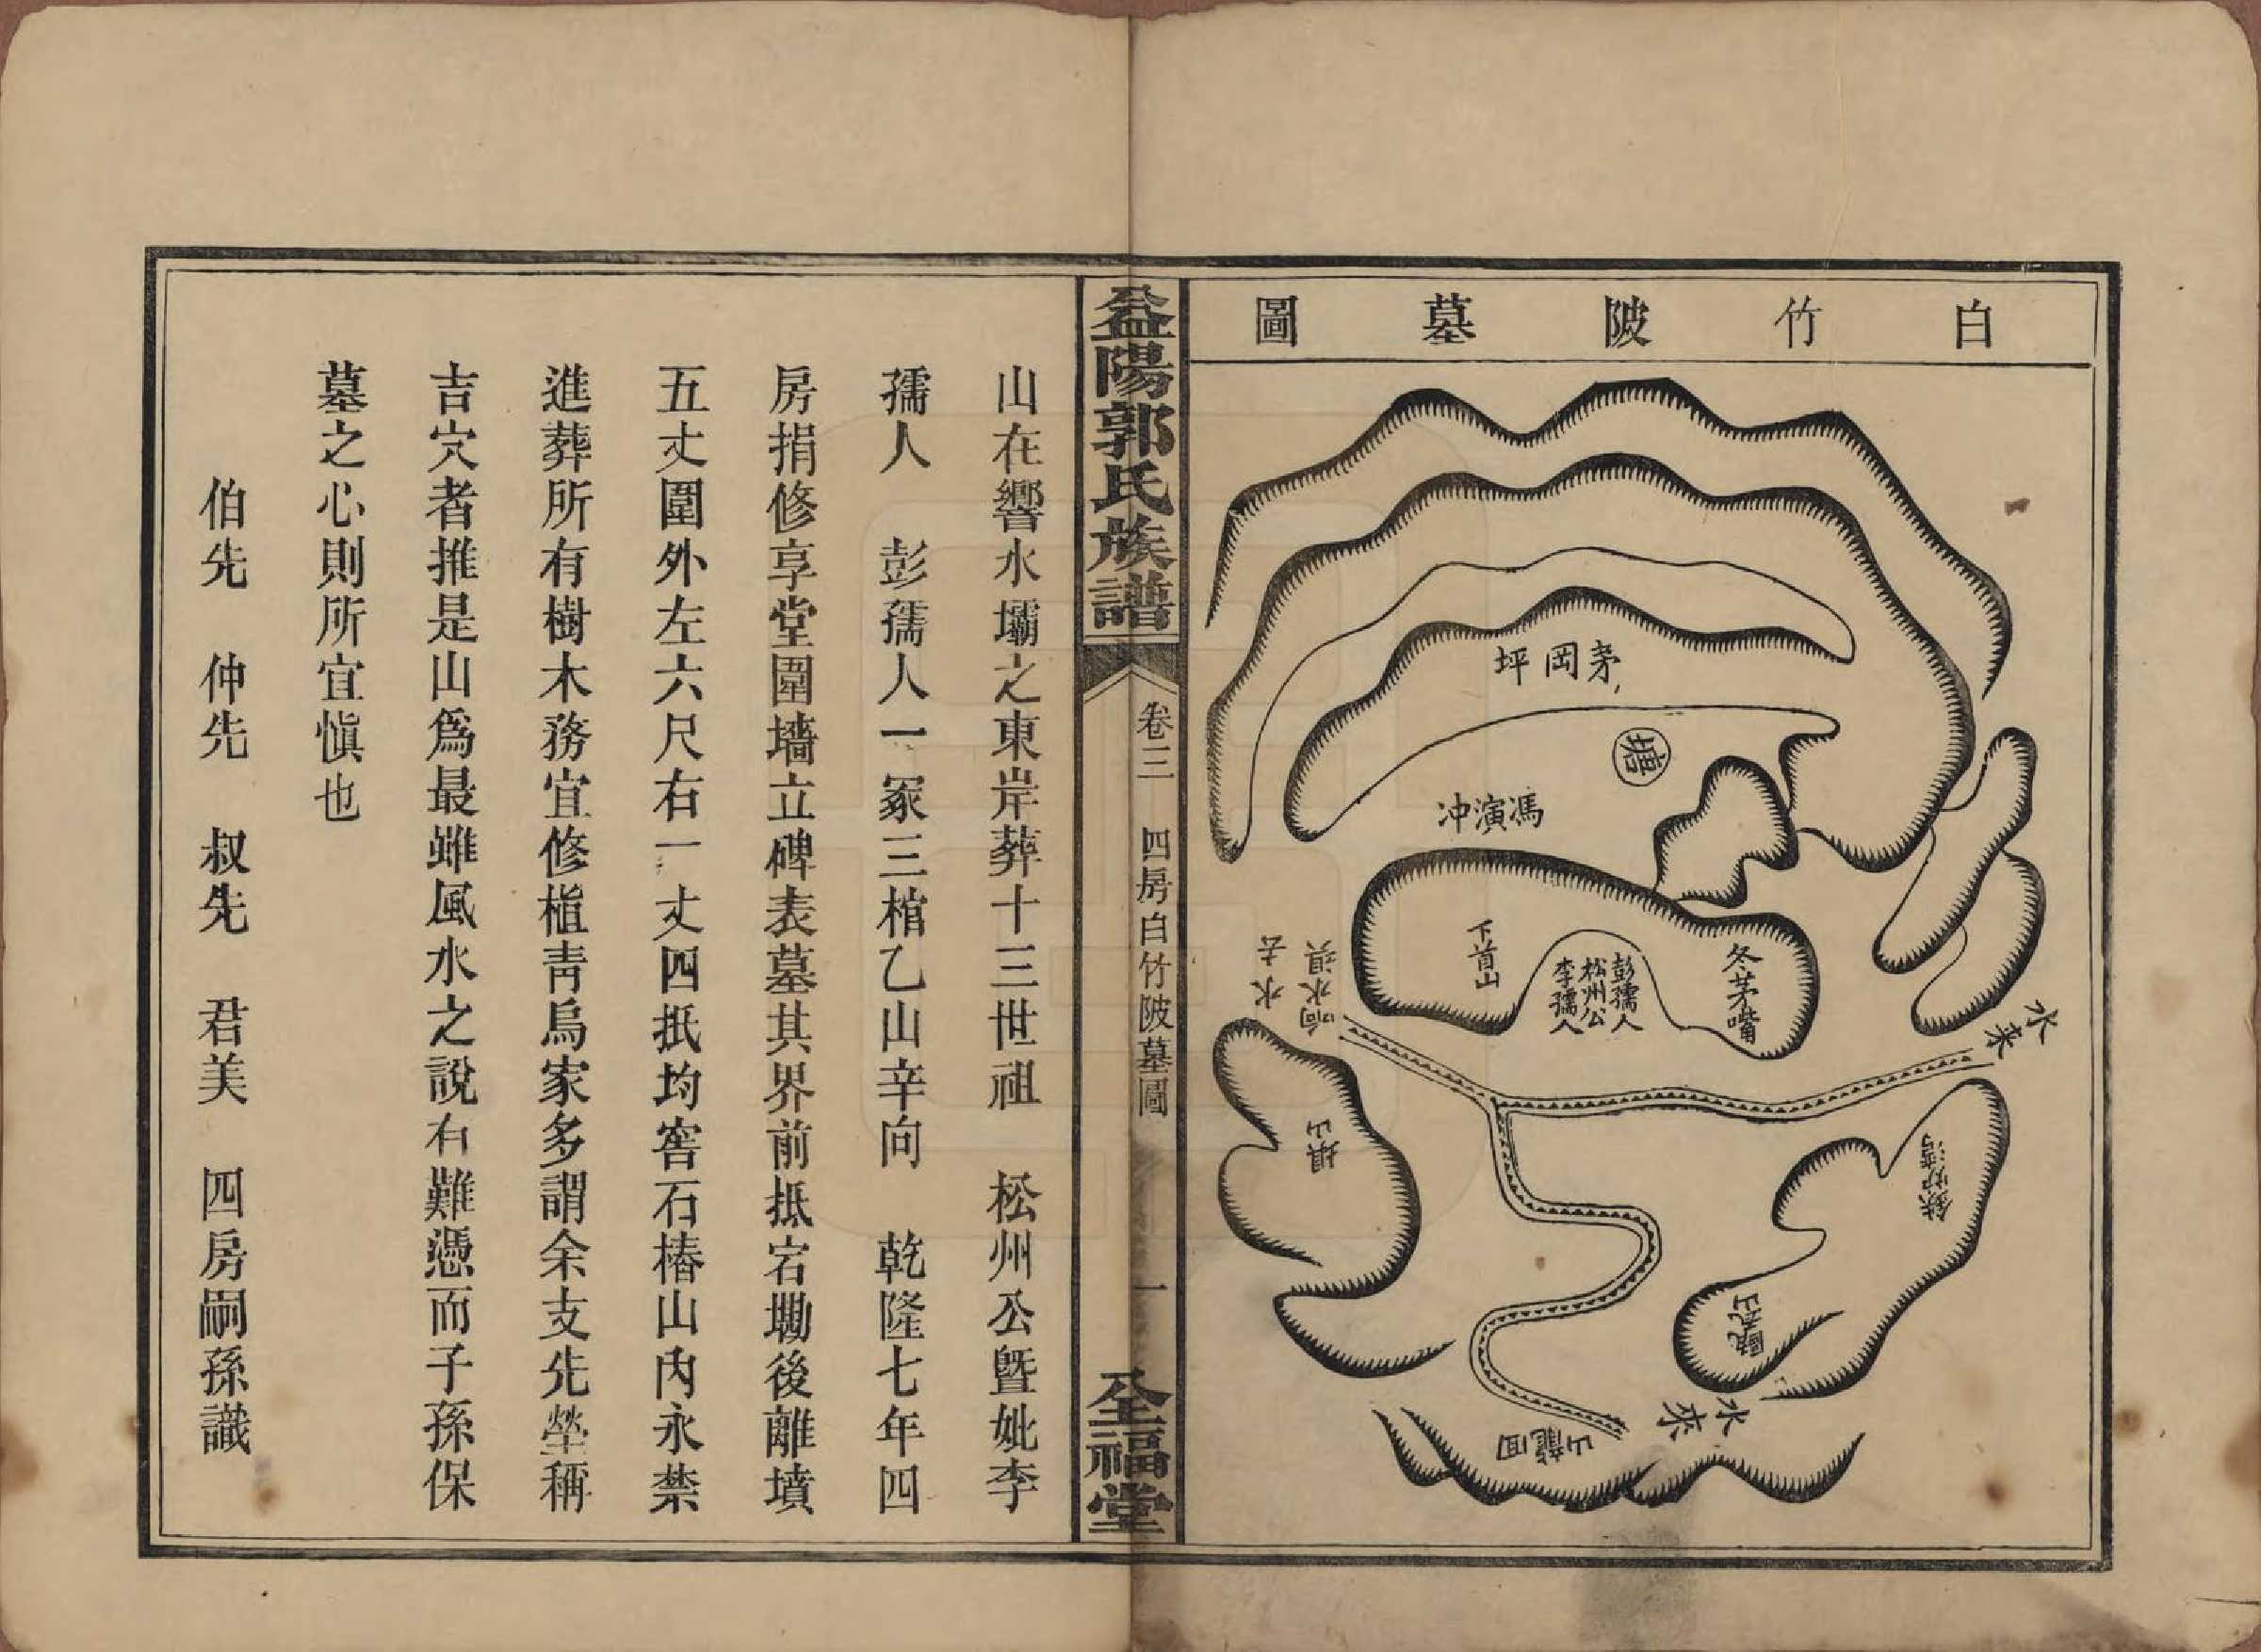 白竹陂墓圖
茅岡坪
塘
馮演冲
冬茅嘴
彭孺人
松州公
李孺人
下首山
水來
响水埧
水去
埧山
水來
回龍山
益陽郭氏族譜
卷三
四房白竹陂墓圖
一
全福堂
山在響水壩之東岸葬十三世祖 松州公暨妣李
孺人 彭孺人一冡三棺乙山辛向 乾隆七年四
房捐修享堂圍墻立碑表墓其界前抵宕墈後離墳
五丈圍外左六尺右一丈四抵均窖石樁山內永禁
進葬所有樹木務宜修植靑烏家多謂余支先塋稱
吉穴者推是山爲最雖風水之說右難憑而子孫保
墓之心則所宜愼也
伯先 仲先 叔先 君美 四房嗣孫識